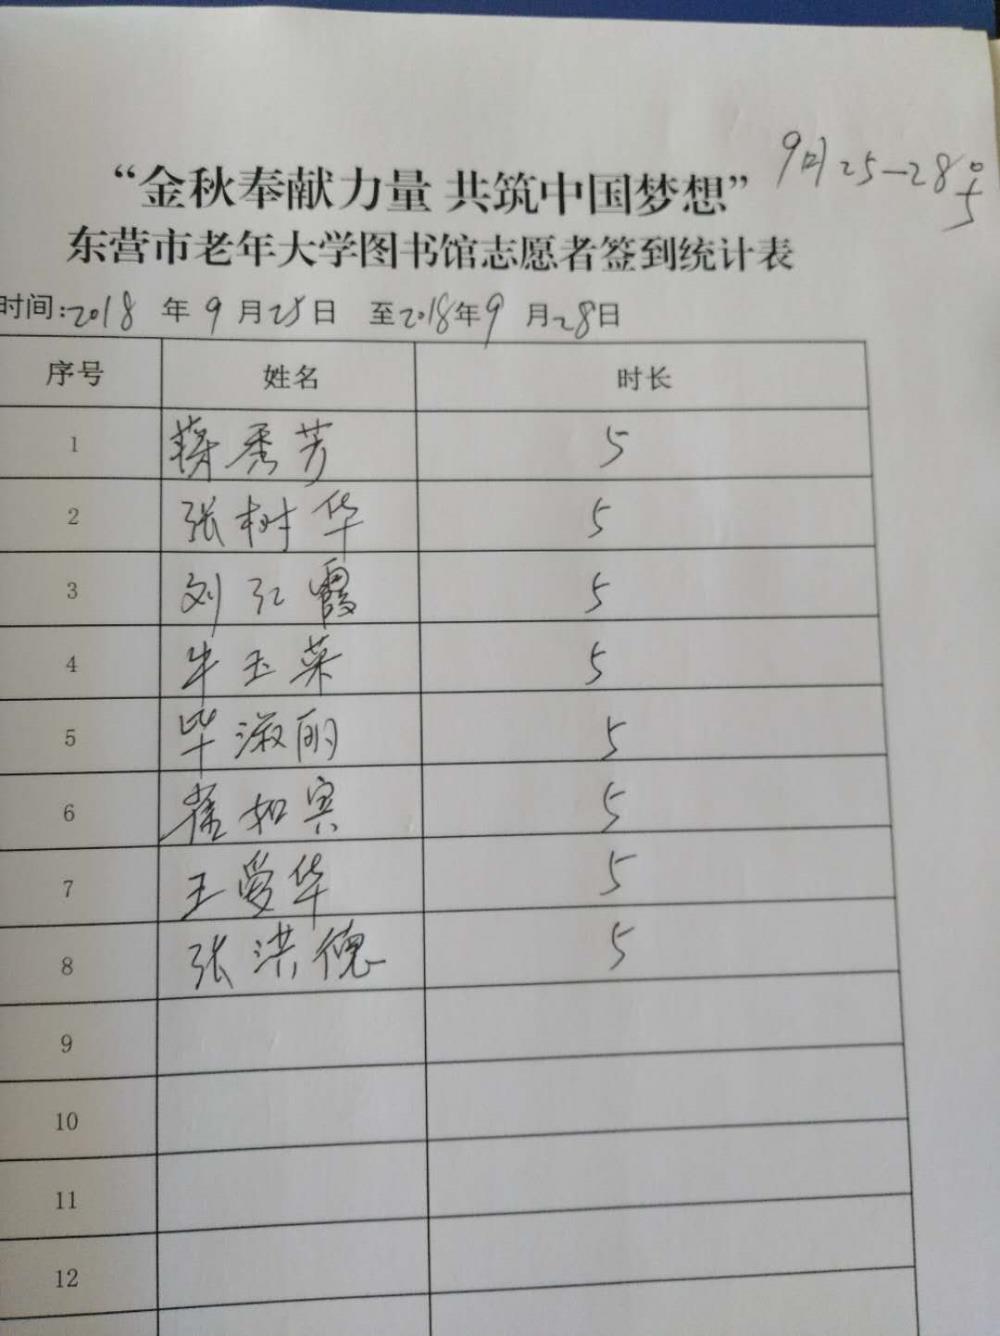 9月25—28号
5
“金秋奉献力量 共筑中国梦想”
东营市老年大学图书馆志愿者签到统计表
时间:2018 年 9 月 25 日 至2018年9 月28日
序号 姓名 时长
1 蒋秀芳 5
2 张树华 5
3 刘红霞 5
4 牛玉菜 5
5 毕淑丽 5
6 崔如宾 5
7 王爱华 5
8 张洪德 5
9
10
11
12